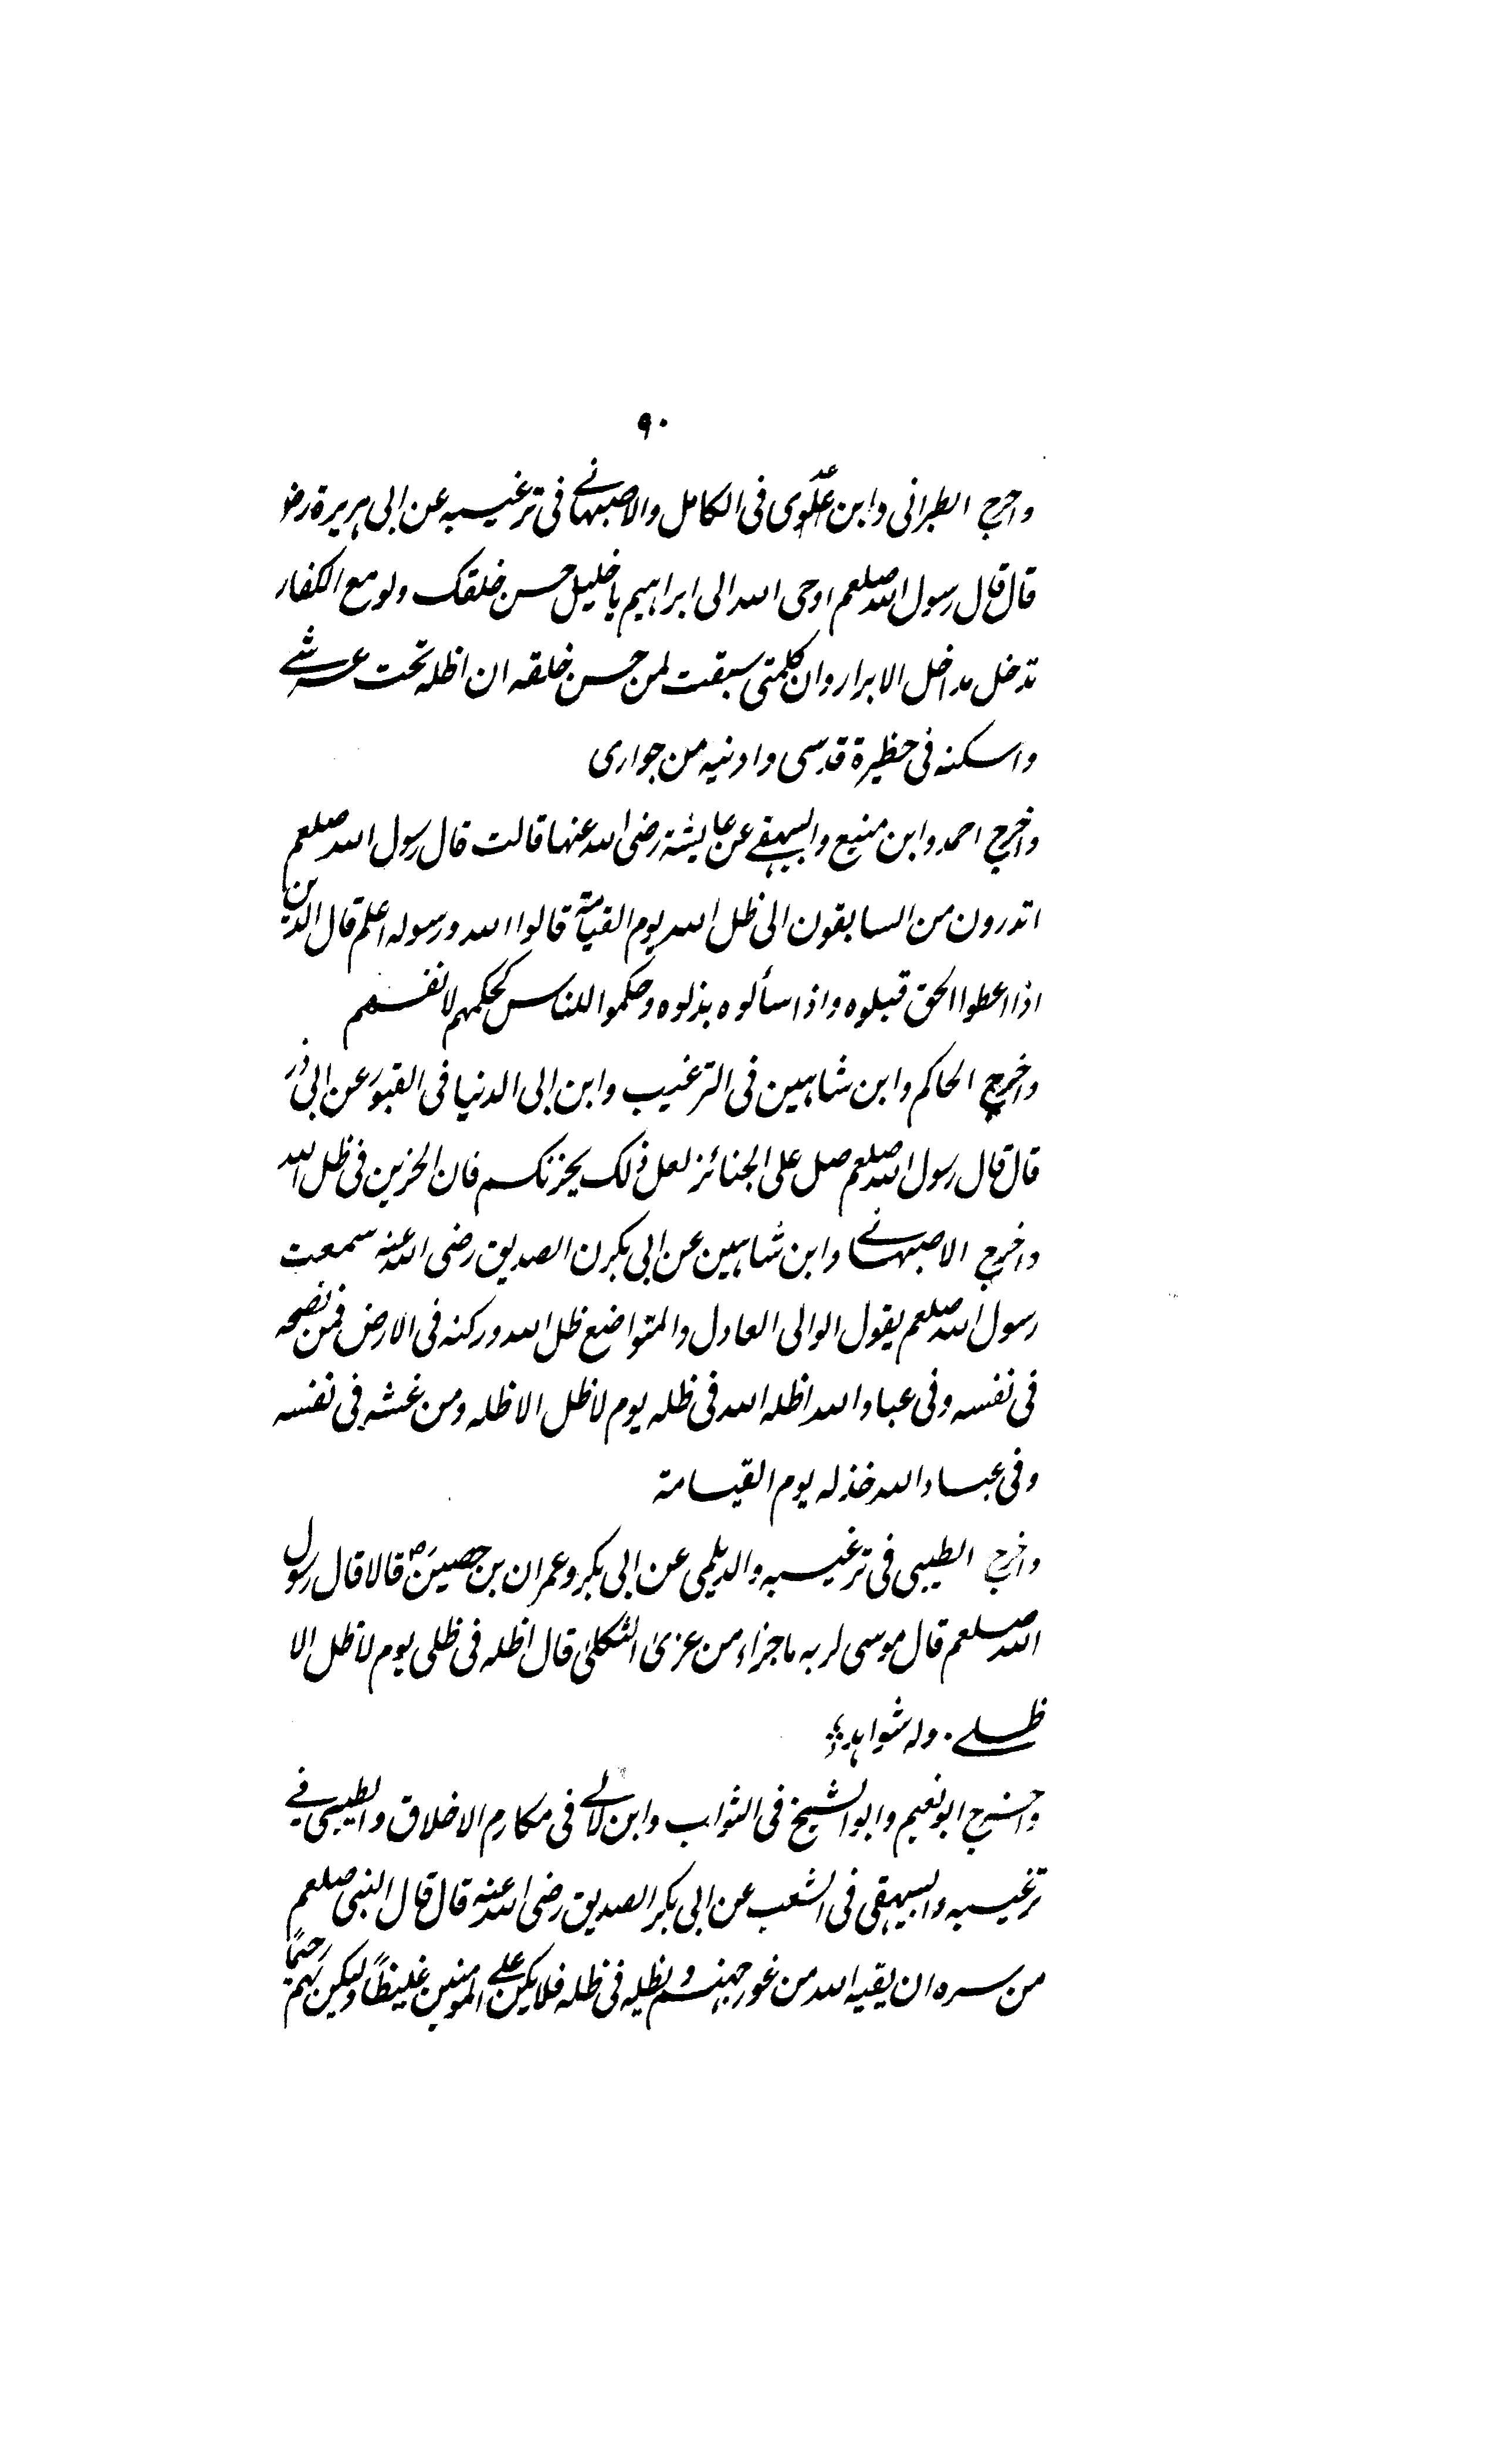 ٩٠
واخرج الطبرانی وابن عدی فی الکامل والاصبہانے فی ترغیبہ عن ابی ہریرة رضو
قال قال رسول اللہ صلعم اوحی اللہ الی ابراہیم یا خلیل حسن خلقک ولو مع الکفار
تدخل مداخل الابرار وان کلمتی سبقت لمن حسن خلقہ ان اظلہ تحت عرشے
واسکنہ فی حظیرة قدسی وادنیہ من جواری
واخرج احمد وابن منیع والبیہقے عن عایشة رضی اللہ عنہا قالت قال رسول اللہ صلعم
اتدرون من السابقون الی ظل اللہ یوم القیامة قالوا اللہ ورسولہ اعلم قال الذین
اذا اعطوا الحق قبلوہ واذا سألوہ بذلوہ وحکموا للناس کحکمہم لانفسہم
واخرج الحاکم وابن شاہین فی الترغیب وابن ابی الدنیا فی القبور عن ابی ذر
قال قال رسول اللہ صلعم صل علی الجنائز لعل ذلک یحزنکسم فان الحزین فی ظل اللہ
واخرج الاصبہانے وابن شاہین عن ابی بکرن الصدیق رضی اللہ عنہ سمعت
رسول اللہ صلعم یقول الوالی العادل والمتواضع ظل اللہ ورکنہ فی الارض فمن نصحہ
فی نفسہ وفی عباد اللہ اظلہ اللہ فی ظلہ یوم لا ظل الا ظلہ ومن غشہ فی نفسہ
وفی عباد اللہ خذلہ یوم القیامة
واخرج الطیبی فی ترغیبہ والدیلمی عن ابی بکر وعمران بن حصین رض قالا قال رسول
اللہ صلعم قال موسی لربہ ما جزاء من عزی الثکلیٰ قال اظلہ فی ظلی یوم لا ظل الا
ظلے۔ ولہ شواہد
واخرج ابو نعیم وابو الشیخ فی الثواب وابن لالے فی مکارم الاخلاق والطیبی فے
ترغیبہ والبیہقی فی الشعب عن ابی بکر الصدیق رضی اللہ عنہ قال قال النبی صلعم
من سرہ ان یقیہ اللہ من غور جہنم ویظلہ فی ظلہ فلا یکن علے المومنین غلیظاً ولیکن بہم رحیماً